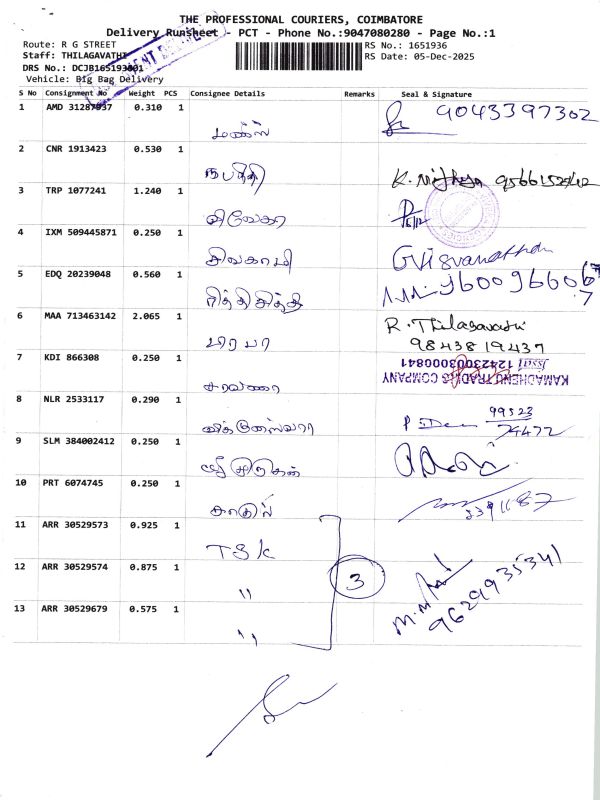 THE PROFESSIONAL COURIERS, COIMBATORE
Delivery Runsheet - PCT - Phone No.:9047080280 - Page No.:1
Route: R G STREET
RS No.: 1651936
Staff: THILAGAVATHI
RS Date: 05-Dec-2025
DRS No.: DCJB165193001
Vehicle: Big Bag Delivery
S No Consignment No Weight PCS Consignee Details Remarks Seal & Signature
1 AMD 31287937 0.310 1 9043397302
2 CNR 1913423 0.530 1 நபநிதி K. Nithya
3 TRP 1077241 1.240 1
4 IXM 509445871 0.250 1 சிவகாமி GVisvanathan
5 EDQ 20239048 0.560 1 9600966067
6 MAA 713463142 2.065 1 பிரபா R. Thilagavathi
9843819437
7 KDI 866308 0.250 1 சரவணா KAMADHENU TRADING COMPANY
8 NLR 2533117 0.290 1 விக்னேஸ்வரா 99523
74472
9 SLM 384002412 0.250 1 ஸ்ரீ முருகன்
10 PRT 6074745 0.250 1
11 ARR 30529573 0.925 1 TSK
12 ARR 30529574 0.875 1 " 3
9629935341
13 ARR 30529679 0.575 1 "